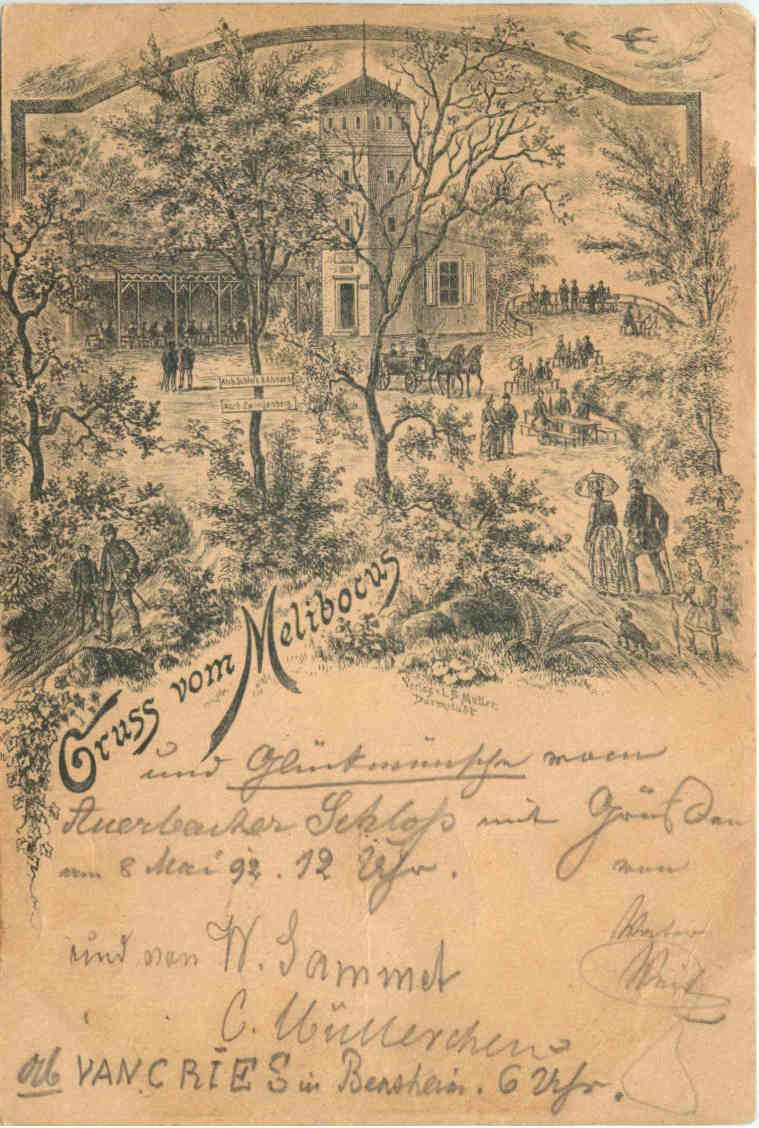 Nach Schloss & Auerb.
Nach Zwingenberg.
Gruss vom Melibocus
Verlag v. L. B. Müller.
Darmstadt
und Glückwünsche vom
Auerbacher Schloß mit Grüßen
am 8 Mai 92. 12 Uhr. von
und von W. Sammet
C. Müllerchen
VAN CRIES in Bensheim. 6 Uhr.